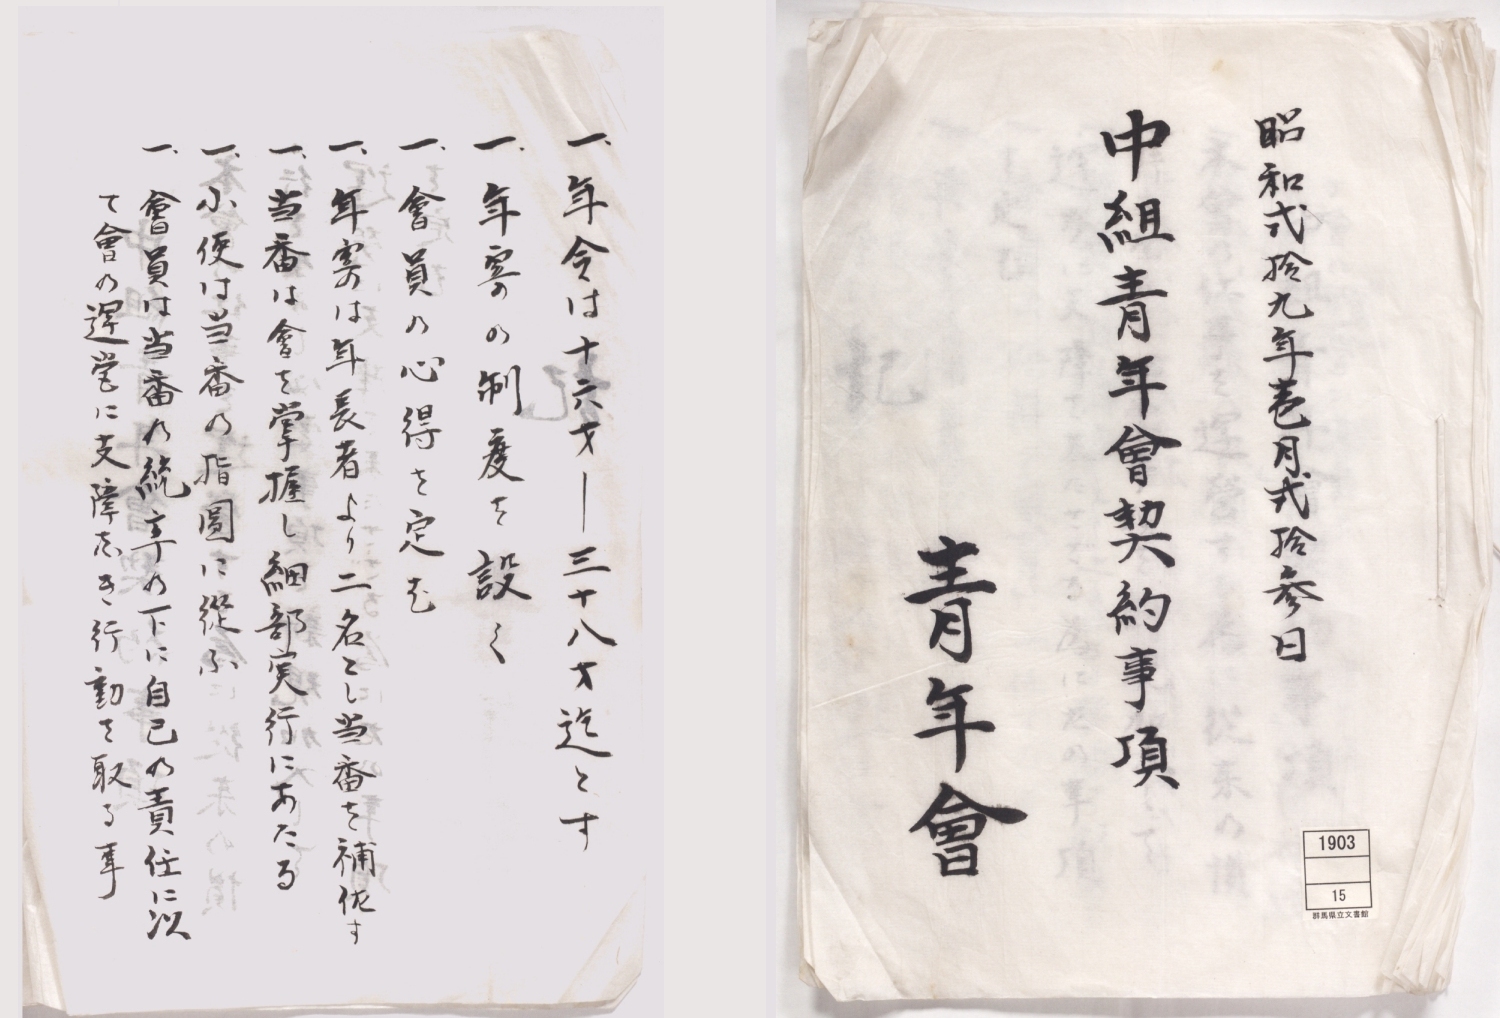 昭和弐拾九年壱月弐拾参日
中組青年會契約事項
青年會
1903
15
群馬県立文書館
一、年令は十六才―三十八才迄とす
一、年寄の制度を設く
一、會員の心得を定む
一、年寄は年長者より二名とし当番を補佐す
一、当番は會を掌握し細部実行にあたる
一、小使は当番の指圖に従ふ
一、會員は当番の統率の下に自己の責任に以
て會の運営に支障志き行動を取る事